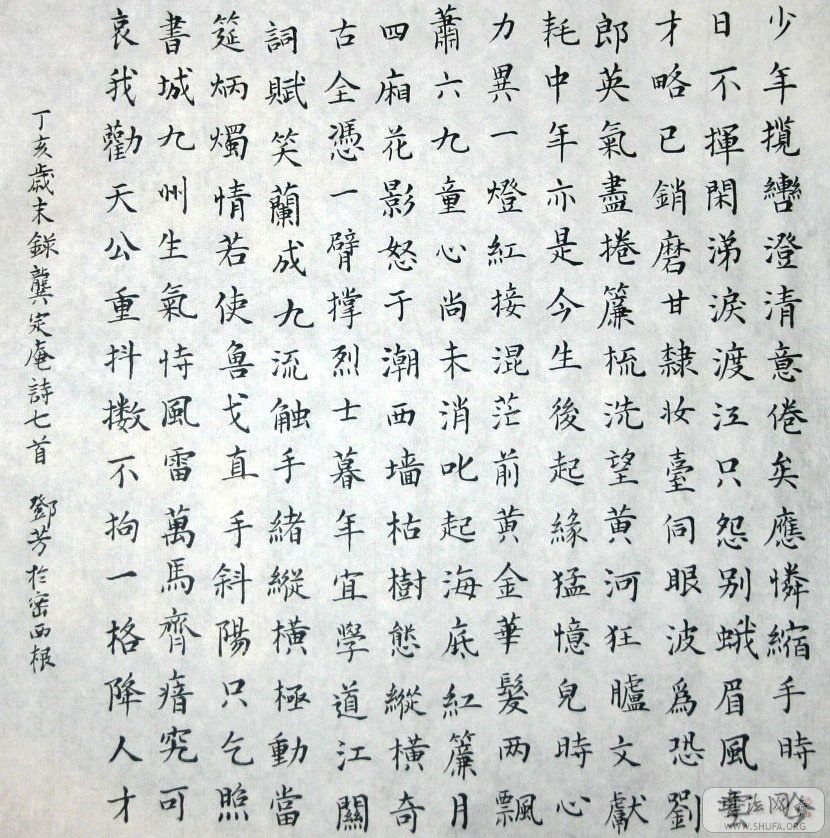 少年攬轡澄清意倦矣應憐縮手時今
日不揮閑涕淚渡江只怨别蛾眉風雲
才略已銷磨甘隸妝臺伺眼波為恐劉
郎英氣盡捲簾梳洗望黃河狂臚文獻
耗中年亦是今生後起緣猛憶兒時心
力異一燈紅接混茫前黃金華髮兩飄
蕭六九童心尚未消叱起海底紅簾月
四廂花影怒于潮西墻枯樹態縱橫奇
古全憑一臂撐烈士暮年宜學道江關
詞賦笑蘭成九流觸手緒縱橫極動當
筵炳燭情若使魯戈直手斜陽只乞照
書城九州生氣恃風雷萬馬齊瘖究可
哀我勸天公重抖擻不拘一格降人才
丁亥歲末錄龔定庵詩七首 鄧芳於密西根
书法网
WWW.SHUFA.ORG